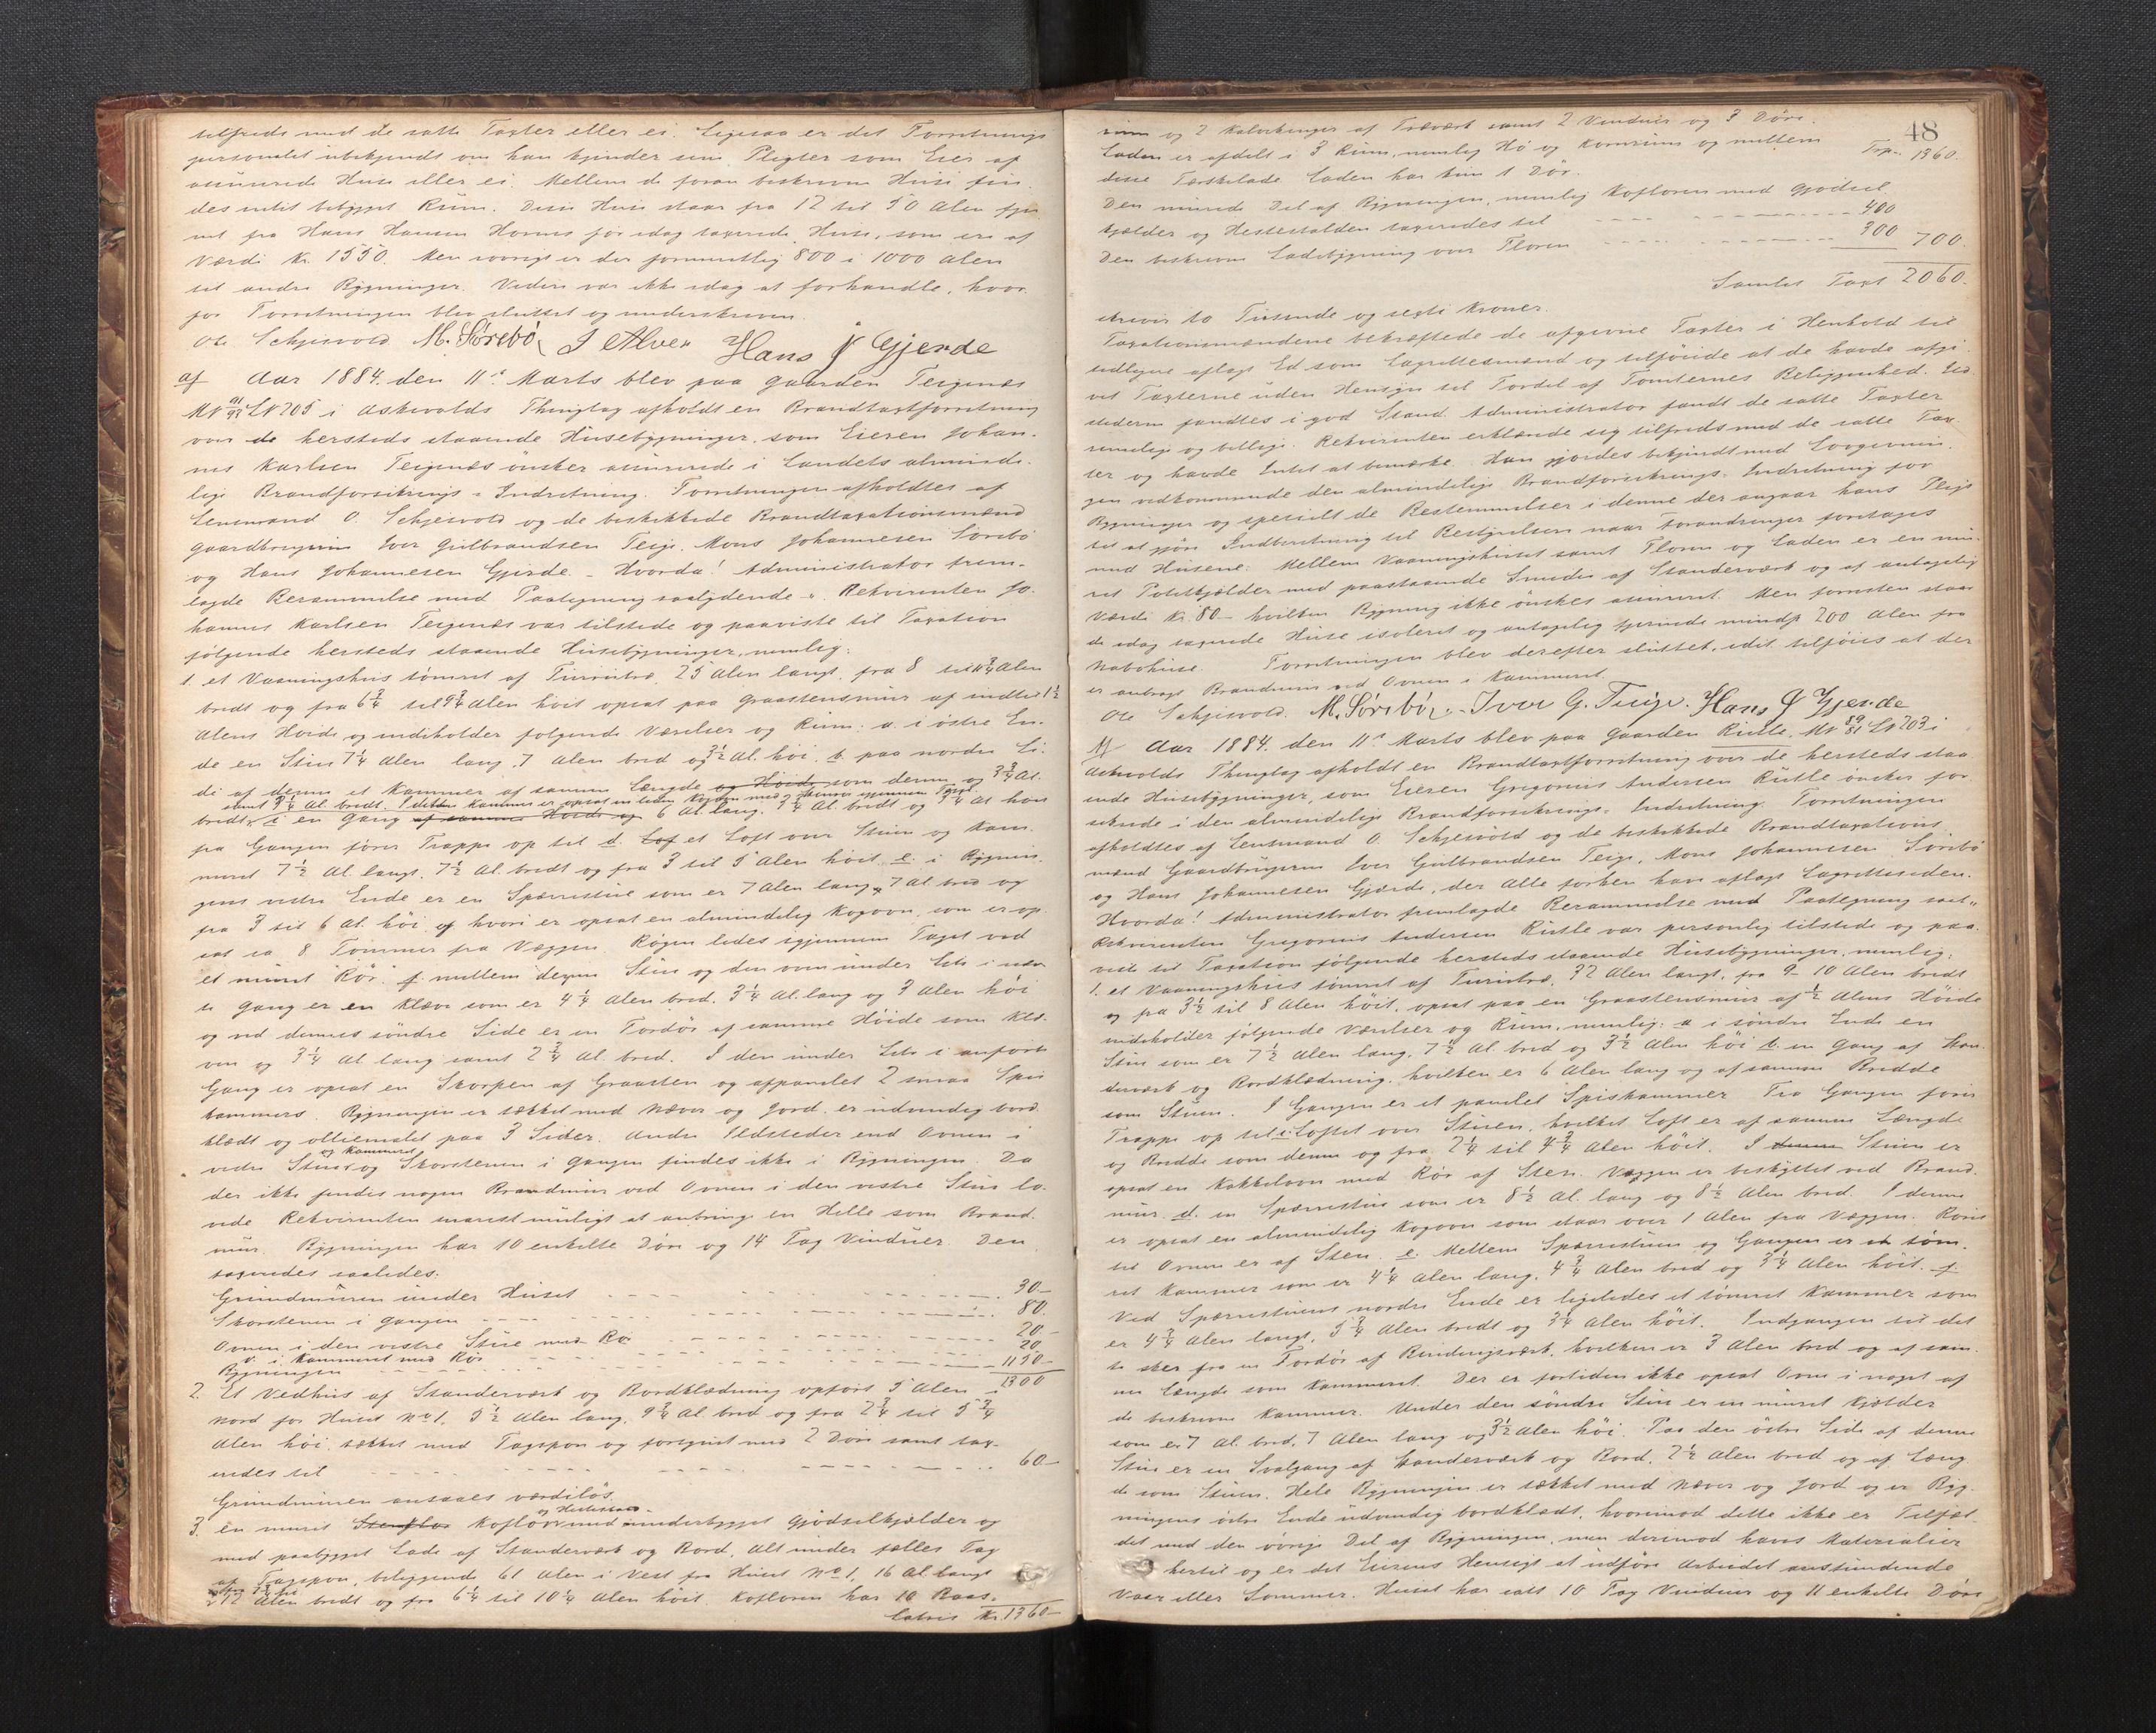 tilfreds med de satte Taxter eller ei. Ligesaa er det Forretnings
personalet ubekjendt om han kjender sine Pligter som Eier af
assurerede Huse eller ei. Mellem de foran beskrevne Huse fin-
des intet bebygget Rum. Disse Huse staar fra 12 til 50 Alen fjer
net fra Hans Hansen Hornes før idag taxerede Huse, som er af
Værdi Kr. 1550. Men iøvrigt er der formentlig 800 à 1000 Alen
til andre Bygninger. Videre var ikke idag at forhandle, hvor
for Forretningen blev sluttet og underskreven.
Ole Schjesvold M. Sørebø J Alver Hans J Gjerde
Aar 1884. den 11te Marts blev paa Gaarden Teigenæs
MN 91/93 LN 205 i Askevolds Thinglag afholdt en Brandtaxtforretning
over de hersteds staaende Husebygninger, som Eieren Johan-
nes Karlsen Teigenæs ønsker assurerede i Landets alminde-
lige Brandforsikrings-Indretning. Forretningen afholdtes af
Lensmand O. Schjesvold og de beskikkede Brandtaxationsmænd
Gaardbrugerne Iver Gulbrandsen Teige, Mons Johannesen Sørebø
og Hans Johannesen Gjerde. - Hvorda! Administrator frem-
lagde Berammelse med Paategning saalydende. Rekvirenten Jo-
hannes Karlsen Teigenæs var tilstede og paaviste til Taxation
følgende hersteds staaende Husebygninger, nemlig:
1. et Vaaningshus tømret af Furutræ, 25 Alen langt, fra 8 til Alen
bredt og fra 6 3/4 til 9 3/4 Alen høit opsat paa Graastensmur af indtil 1 1/2
Alens Høide og indeholder følgende Værelser og Rum: a. i østre En-
de en Stue 7 1/4 Alen lang 7 Alen bred og 3 1/2 Al. høi, b. paa nordre Si-
de af denne et Kammer af samme Længde og Høide som denne og 3 3/4 Al.
bredt, c en Gang af samme Høide og 6 Al. lang, 3 1/4 Al. bredt og 3 1/4 Al høi
fra Gangen fører Trappe op til d. Lof et Loft over Stuen og Kam-
meret 7 1/2 Al. langt, 7 1/2 Al. bredt og fra 3 til 5 Alen høit e. i Bygnin-
gens vestre Ende er en Sperrestue som er 7 Alen lang, 7 Al. bred og
fra 3 til 6 Al. høi, og hvori er opsat en almindelig Kogovn, som er op-
sat ca 8 Tommer fra Væggen. Røgen ledes igjennem Taget ved
et muret Rør. f. mellem denne Stue og den oven under Lit. c næv-
te Gang er en Kleve som er 4 1/4 Alen bred, 3 1/4 Al. lang og 3 Alen høi
og ved dennes søndre Side er en Fordør af samme Høide som Kle-
ven og 3 1/4 Al lang samt 2 3/4 Al. bred. I den under Lit. c anførte
Gang er opsat en Skorpen af Graasten og afpanelet 2 smaa Spis
kammers. Bygningen er tækket med Næver og Jord, er udvendig bord
klædt og oliemalet paa 3 Sider. Andre Ildsteder end Ovnen i
og Kammeret
vestre Stue, og Skorstenen i Gangen findes ikke i Bygningen. Da
der ikke findes nogen Brandmur ved Ovnen i den vestre Stue lo-
vede Rekvirenten snarest muligt at anbringe en Helle som Brand-
mur. Bygningen har 10 enkelte Døre og 14 Fag Vinduer. Den
taxeredes saaledes:
Grundmuren under Huset 30-
Skorstenen i Gangen 80.
Ovnen i den vestre Stue med Rør 20-
D. i Kammeret med Rør 20
Bygningen 1150-
1300
2. Et Vedhus af Standerværk og Bordklædning opført 5 Alen
nord for Huset No 1, 5 1/2 Alen lang, 9 3/4 Al. bred og fra 2 3/4 til 5 3/4
Alen høi, tækket med Tagspon og forsynet med 2 Døre samt tax-
eredes til 60-
Grundmuren ansaaes værdiløs.
3. en muret Stenflor Koflor med underbygget Gjødselkjælder og
med paabygget Lade af Standerværk og Bord, alt under fælles Tag
af Tagspon, beliggende 61 Alen i Vest fra Huset No 1, 16 Al. langt
Alen bredt og fra 6 1/4 til 10 1/4 Alen høit. Kofloren har 10 Baas-
Latris Kr. 1360-
48
rum og 2 Kalvebinger af Træværk samt 2 Vinduer og 3 Døre.
Trsp. 1360.
Laden er afdelt i 3 Rum, nemlig Hø og Kornrum og mellem
disse Tærskelade. Laden har kun 1 Dør.
Den murede Del af Bygningen, nemlig Kofloren med Gjødsel
kjælder og Hestestalden taxeredes til 400
Den beskrevne Ladebygning over Floren 300 700.
Samlet Taxt 2060.
skriver to Tusinde og sexti Kroner.
Taxationsmændene bekræftede de afgivne Taxter i Henhold til
tidligere aflagt Ed som Lagrettesmænd og tilføiede at de havde afgi-
vet Taxterne uden Hensyn til Fordel af Tomternes Beliggenhed. Ild-
stederne fandtes i god Stand. Administrator fandt de satte Taxter
rimelige og billige. Rekvirenten erklærede sig tilfreds med de satte Tax-
ter og havde Intet at bemærke. Han gjordes bekjendt med Lovgivnin-
gen vedkommende den almindelige Brandforsikrings-Indretning for
Bygninger og specielt de Bestemmelser i denne der angaar hans Pligt
til at gjøre Indberetning til Bestyrelsen naar Forandringer foretages
med Husene. Mellem Vaaningshuset samt Floren og Laden er en mu-
ret Potetkjælder med paastaaende Smedie af Standerværk og af antagelig
Værdi Kr. 80 - hvilken Bygning ikke ønskes assureret. Men forresten staar
de idag taxerede Huse isoleret og antagelig fjernede mindst 200 Alen fra
Nabohuse. Forretningen blev derefter sluttet, idet tilføies at der
er anbragt Brandmur ved Ovnen i Kammeret.
Ole Schjesvold. M. Sørebø. Iver G. Teige. Hans J Gjerde
Aar 1884. den 11te Marts blev paa Gaarden Risttle, MN LN 203 i
Askevolds Thinglag afholdt en Brandtaxtforretning over de hersteds staa
ende Husebygninger, som Eieren Gregorius Andersen Ristle ønsker for-
sikrede i den almindelige Brandforsikrings-Indretning. Forretningen
afholdtes af Lensmand O. Schjesvold og de beskikkede Brandtaxations
mænd Gaardbrugerne Iver Gulbrandsen Teige, Mons Johannesen Sørebø
og Hans Johannesen Gjærde, der Alle forhen have aflagt Lagretteseden.
Hvorda! Administrator fremlagde Berammelse med Paategning saal.
Rekvirenten Gregorius Andersen Ristle var personlig tilstede og paa-
viste til Taxation følgende hersteds staaende Husebygninger, nemlig:
1. et Vaaningshus tømret af Furutræ, 32 Alen langt, fra 9-10 Alen bredt
og fra 3 1/2 til 8 Alen høit, opsat paa en Graastensmur af 1/2 Alens Høide
indeholder følgende Værelser og Rum, nemlig: a i søndre Ende en
Stue som er 7 1/2 Alen lang, 7 1/2 Al. bred og 3 1/2 Alen høi b. en Gang af Stan-
derværk og Bordklædning, hvilken er 6 Alen lang og af samme Bredde
som Stuen. I Gangen er et panelet Spiskammer Fra Gangen fører
Trappe op til c Loftet over Stuen, hvilket Loft er af samme Længde
og Bredde som denne og fra 2 1/4 til 4 3/4 Alen høit. I denne Stuen er
opsat en Kakkelovn med Rør af Sten. Væggen er beskyttet ved Brand-
mur. d. en Sperrestue som er 8 1/2 Al. lang og 8 1/2 Alen bred. I denne
er opsat en almindelig Kogovn som staar over 1 Alen fra Væggen. Røret
til Ovnen er af Sten. e. Mellem Sperrestuen og Gangen er et tøm-
ret Kammer som er 4 1/4 Alen lang, 4 3/4 Alen bred og 3 1/4 Alen høit. f.
Ved Sperrestuens nordre Ende er ligeledes et tømret Kammer som
er 4 3/4 Alen langt, 5 3/4 Alen bredt og 3 1/4 Alen høit. Indgangen til det
te sker fra en Fordør af Bindingsværk, hvilken er 3 Alen bred og af sam-
me Længde som Kammeret. Der er fortiden ikke opsat Ovn i noget af
de beskrevne Kammer. Under den søndre Stue er en muret Kjælder
som er 7 Al. bred, 7 Alen lang og 3 1/2 Alen høi. Paa den østre Side af denne
Stue er en Svalgang af Standerværk og Bord, 2 1/4 Alen bred og af Læng
de som Stuen. Hele Bygningen er tækket med Næver og Jord og er Byg-
ningens østre Ende udvendig bordklædt, hvorimod dette ikke er Tilfæl-
det med den øvrige Del af Bygningen, men derimod haves Materialier
hertil og er det Eierens Hensigt at udføre Arbeidet anstundende
Vaar eller Sommer. Huset har ialt 10 Fag Vinduer og 11 enkelte Døre